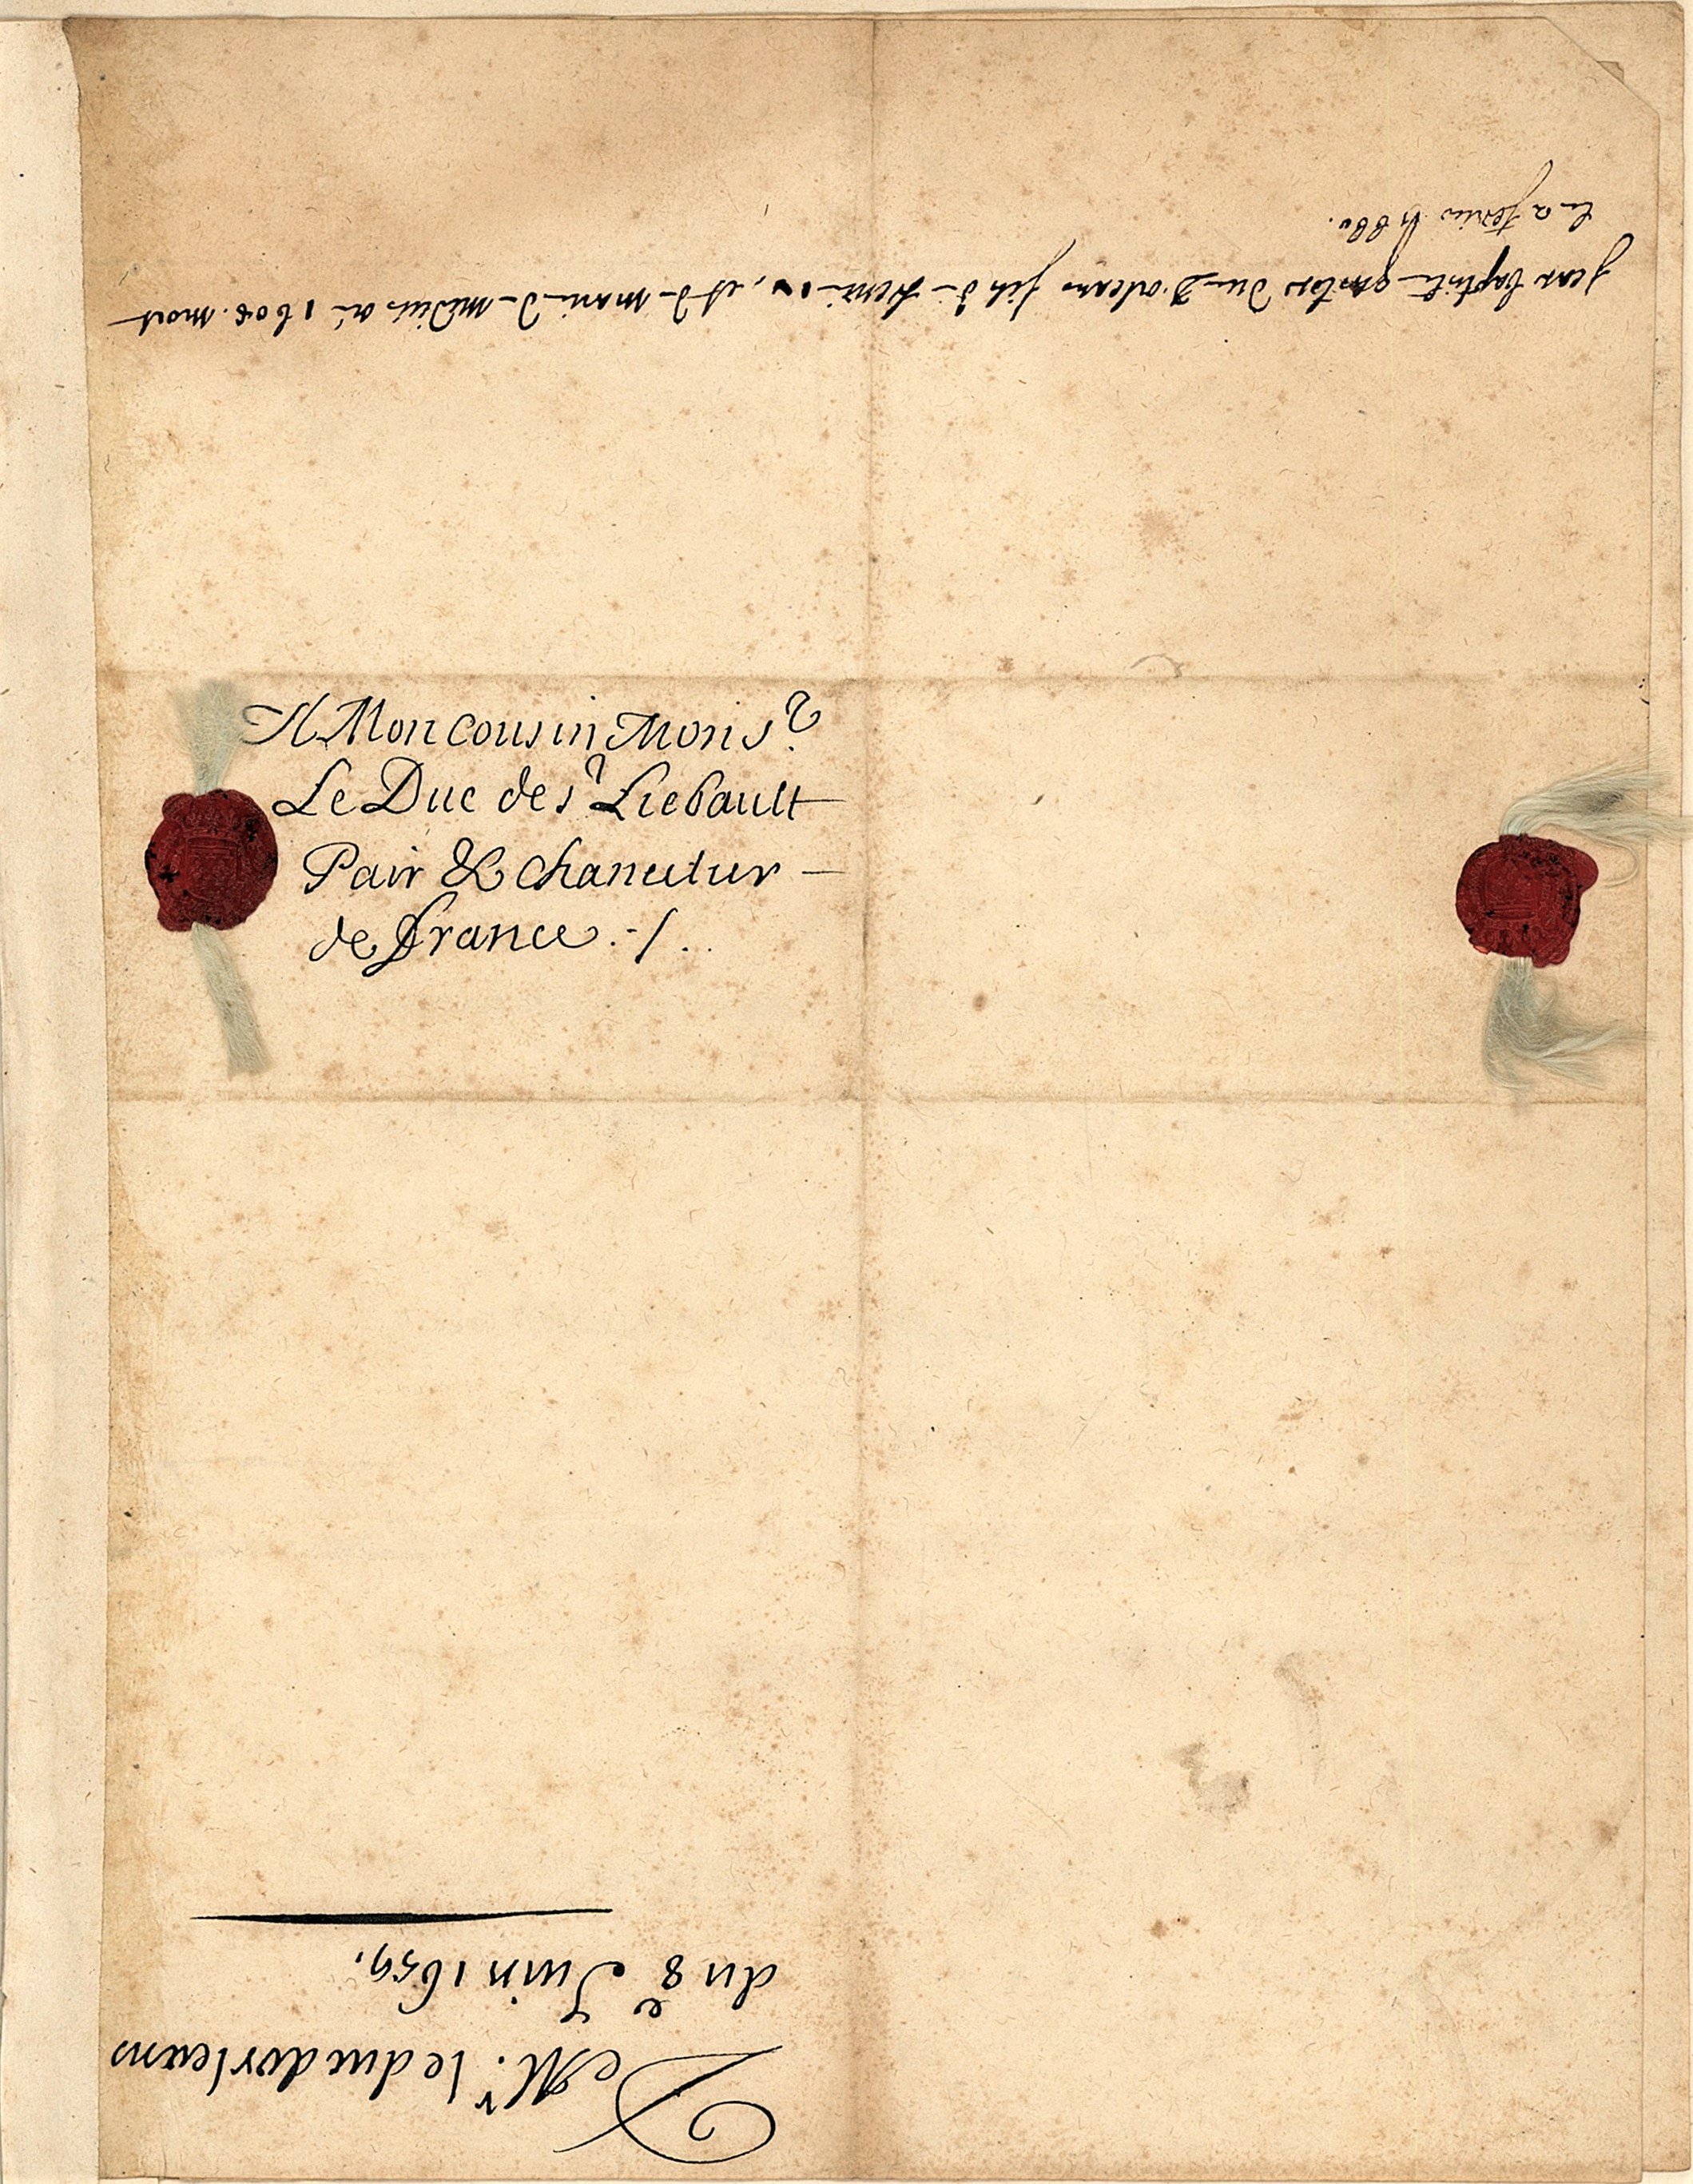 A Mon cousin Mons.r
Le Duc de s.r Liebault
Pair & chancelier
de France ./.
De M.r le duc dorleans
du 8e Juin 1659.
Jean baptiste gaston Duc D'orleans fils de henri iv, et de marie de medicis né 1608. mort
le 2 fevrier